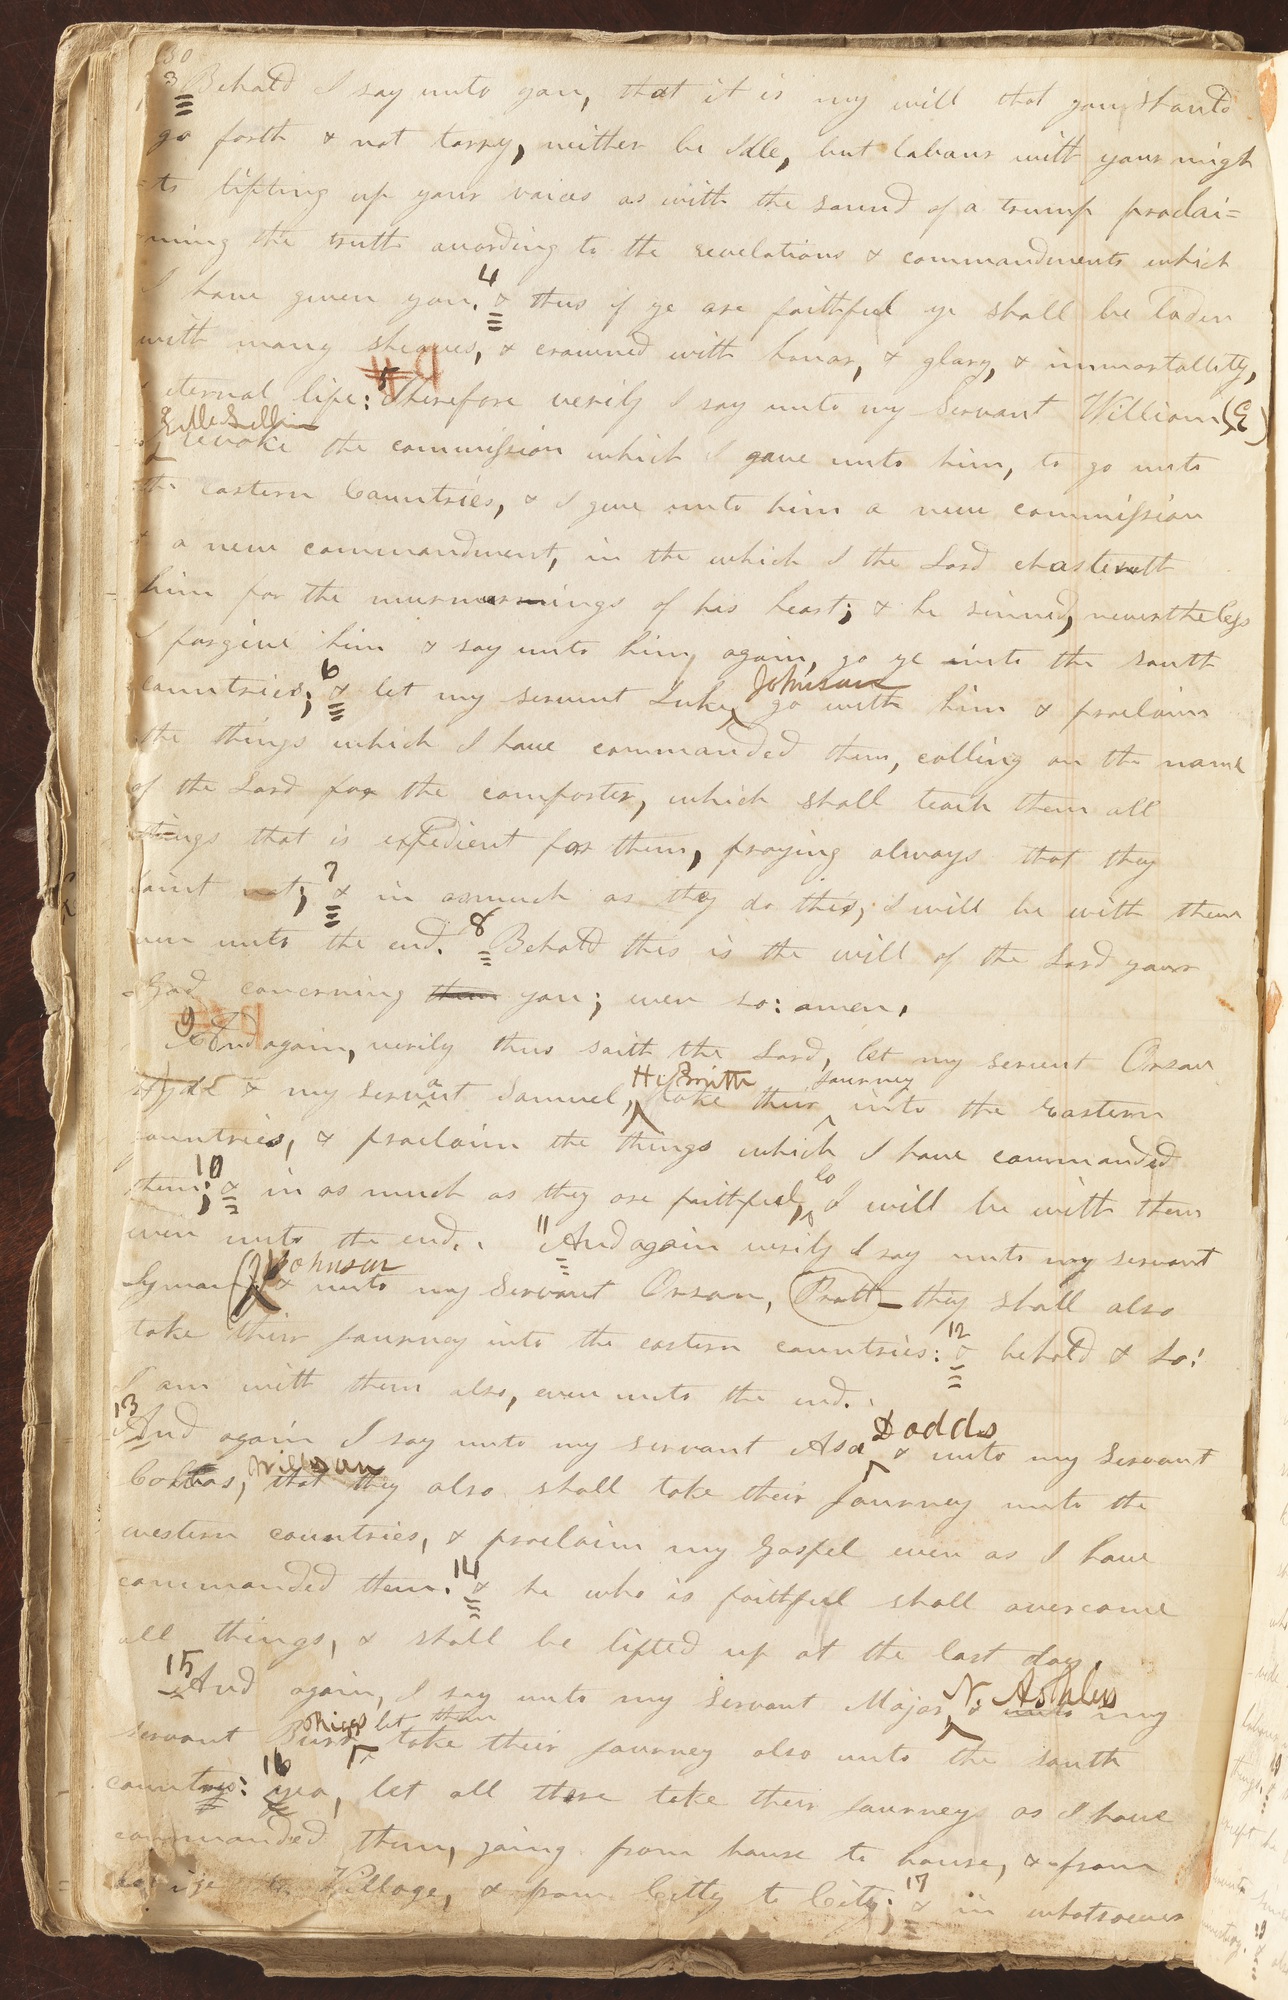 3 Behold I say unto you, that it is my will that you should
go forth & not tarry, neither be Idle, but labour with your migh
=ts lifting up your voices as with the sound of a trump proclai=
-ming the truth according to the revelations & commandments which
I have given you. 4 & thus if ye are faithful ye shall be laden
with many sheaves, & crowned with honor, & glory, & immortallity,
& eternal life: 5 Therefore verily I say unto my Servant William (E)
I revoke the commission which I gave unto him, to go unto
the eastern Countries, & I give unto him a new commission
& a new commandment, in the which I the Lord chasteneth
him for the murmurnings of his heart; & he sinned, nevertheless
I forgive him & say unto him again, go ye into the south
countries; 6 & let my servent Luke Johnson go with him & proclaim
the things which I have commanded them, calling on the name
of the Lord for the comforter, which shall teach them all
things that is expedient for them, praying always that they
faint not; 7 & in asmuch as they do this, I will be with them
even unto the end. 8 Behold this is the will of the Lord your
God concerning them you; even so: amen.
9 And again, verily thus saith the Lord, let my servent Orson
Hyde & my servant Samuel, H. Smith take their Journey into the Eastern
countries, & proclaim the things which I have commanded
them; 10 & in as much as they are faithful, lo I will be with them
even unto the end. 11 And again verily I say unto my servant
Lyman Johnson & unto my Servant Orson, Pratt they shall also
take their Journey into the eastern countries: 12 & behold & lo!
I am with them also, even unto the end.
13 And again I say unto my servant Asa Dodds & unto my Servant
Collas, Willson that they also shall take their Journey unto the
western countries, & proclaim my Gospel even as I have
commanded them. 14 & he who is faithful shall overcome
all things, & shall be lifted up at the last day.
15 And again, I say unto my Servant Major N. Ashley & unto my
servant Burr Riggs let them take their Journey also unto the south
countries: 16 yea, let all these take their Journey as I have
commanded them, going from house to house, & from
Village to Village, & from Citty to City; 17 & in whatsoever